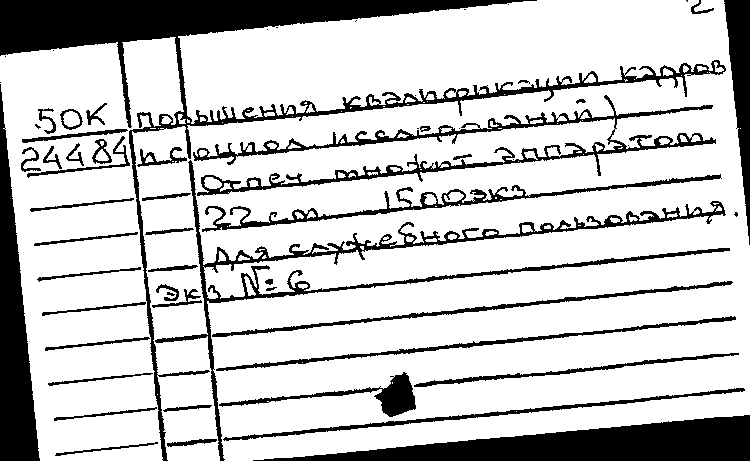 2
50К повышения квалификации кадров
24484 и социол. исследований)
Отпеч. множит. аппаратом.
22 см. 1500 экз
Для служебного пользования.
Экз. № 6